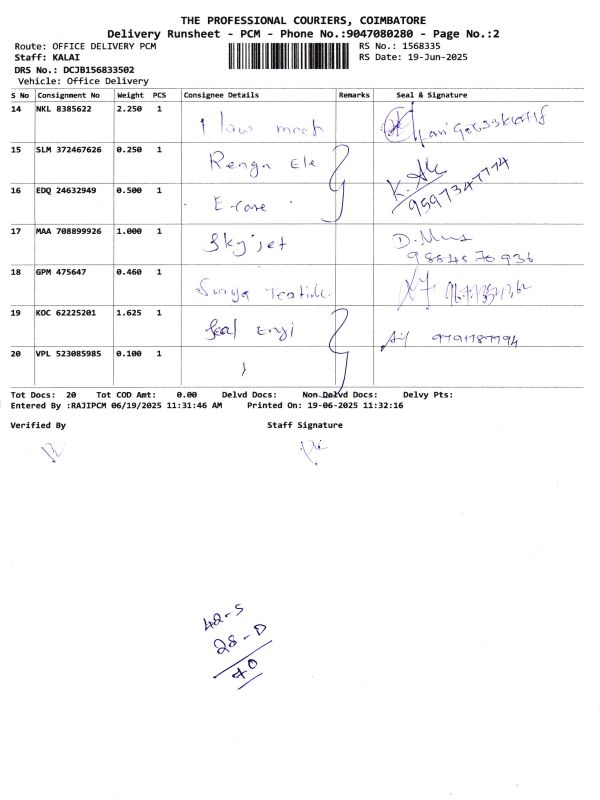 THE PROFESSIONAL COURIERS, COIMBATORE
Delivery Runsheet - PCM - Phone No.:9047080280 - Page No.:2
Route: OFFICE DELIVERY PCM
Staff: KALAI
DRS No.: DCJB156833502
Vehicle: Office Delivery
RS No.: 1568335
RS Date: 19-Jun-2025
S No Consignment No Weight PCS Consignee Details Remarks Seal & Signature
14 NKL 8385622 2.250 1
15 SLM 372467626 0.250 1 Renga Ele
16 EDQ 24632949 0.500 1 E-care K. 9597347774
17 MAA 708899926 1.000 1 Skyjet D.
9884570936
18 GPM 475647 0.460 1 Surya Textile
19 KOC 62225201 1.625 1 Seal Engi 9791787794
20 VPL 523085985 0.100 1
Tot Docs: 20 Tot COD Amt: 0.00 Delvd Docs: Non Delvd Docs: Delvy Pts:
Entered By :RAJIPCM 06/19/2025 11:31:46 AM Printed On: 19-06-2025 11:32:16
Verified By Staff Signature
42-S
28-D
70